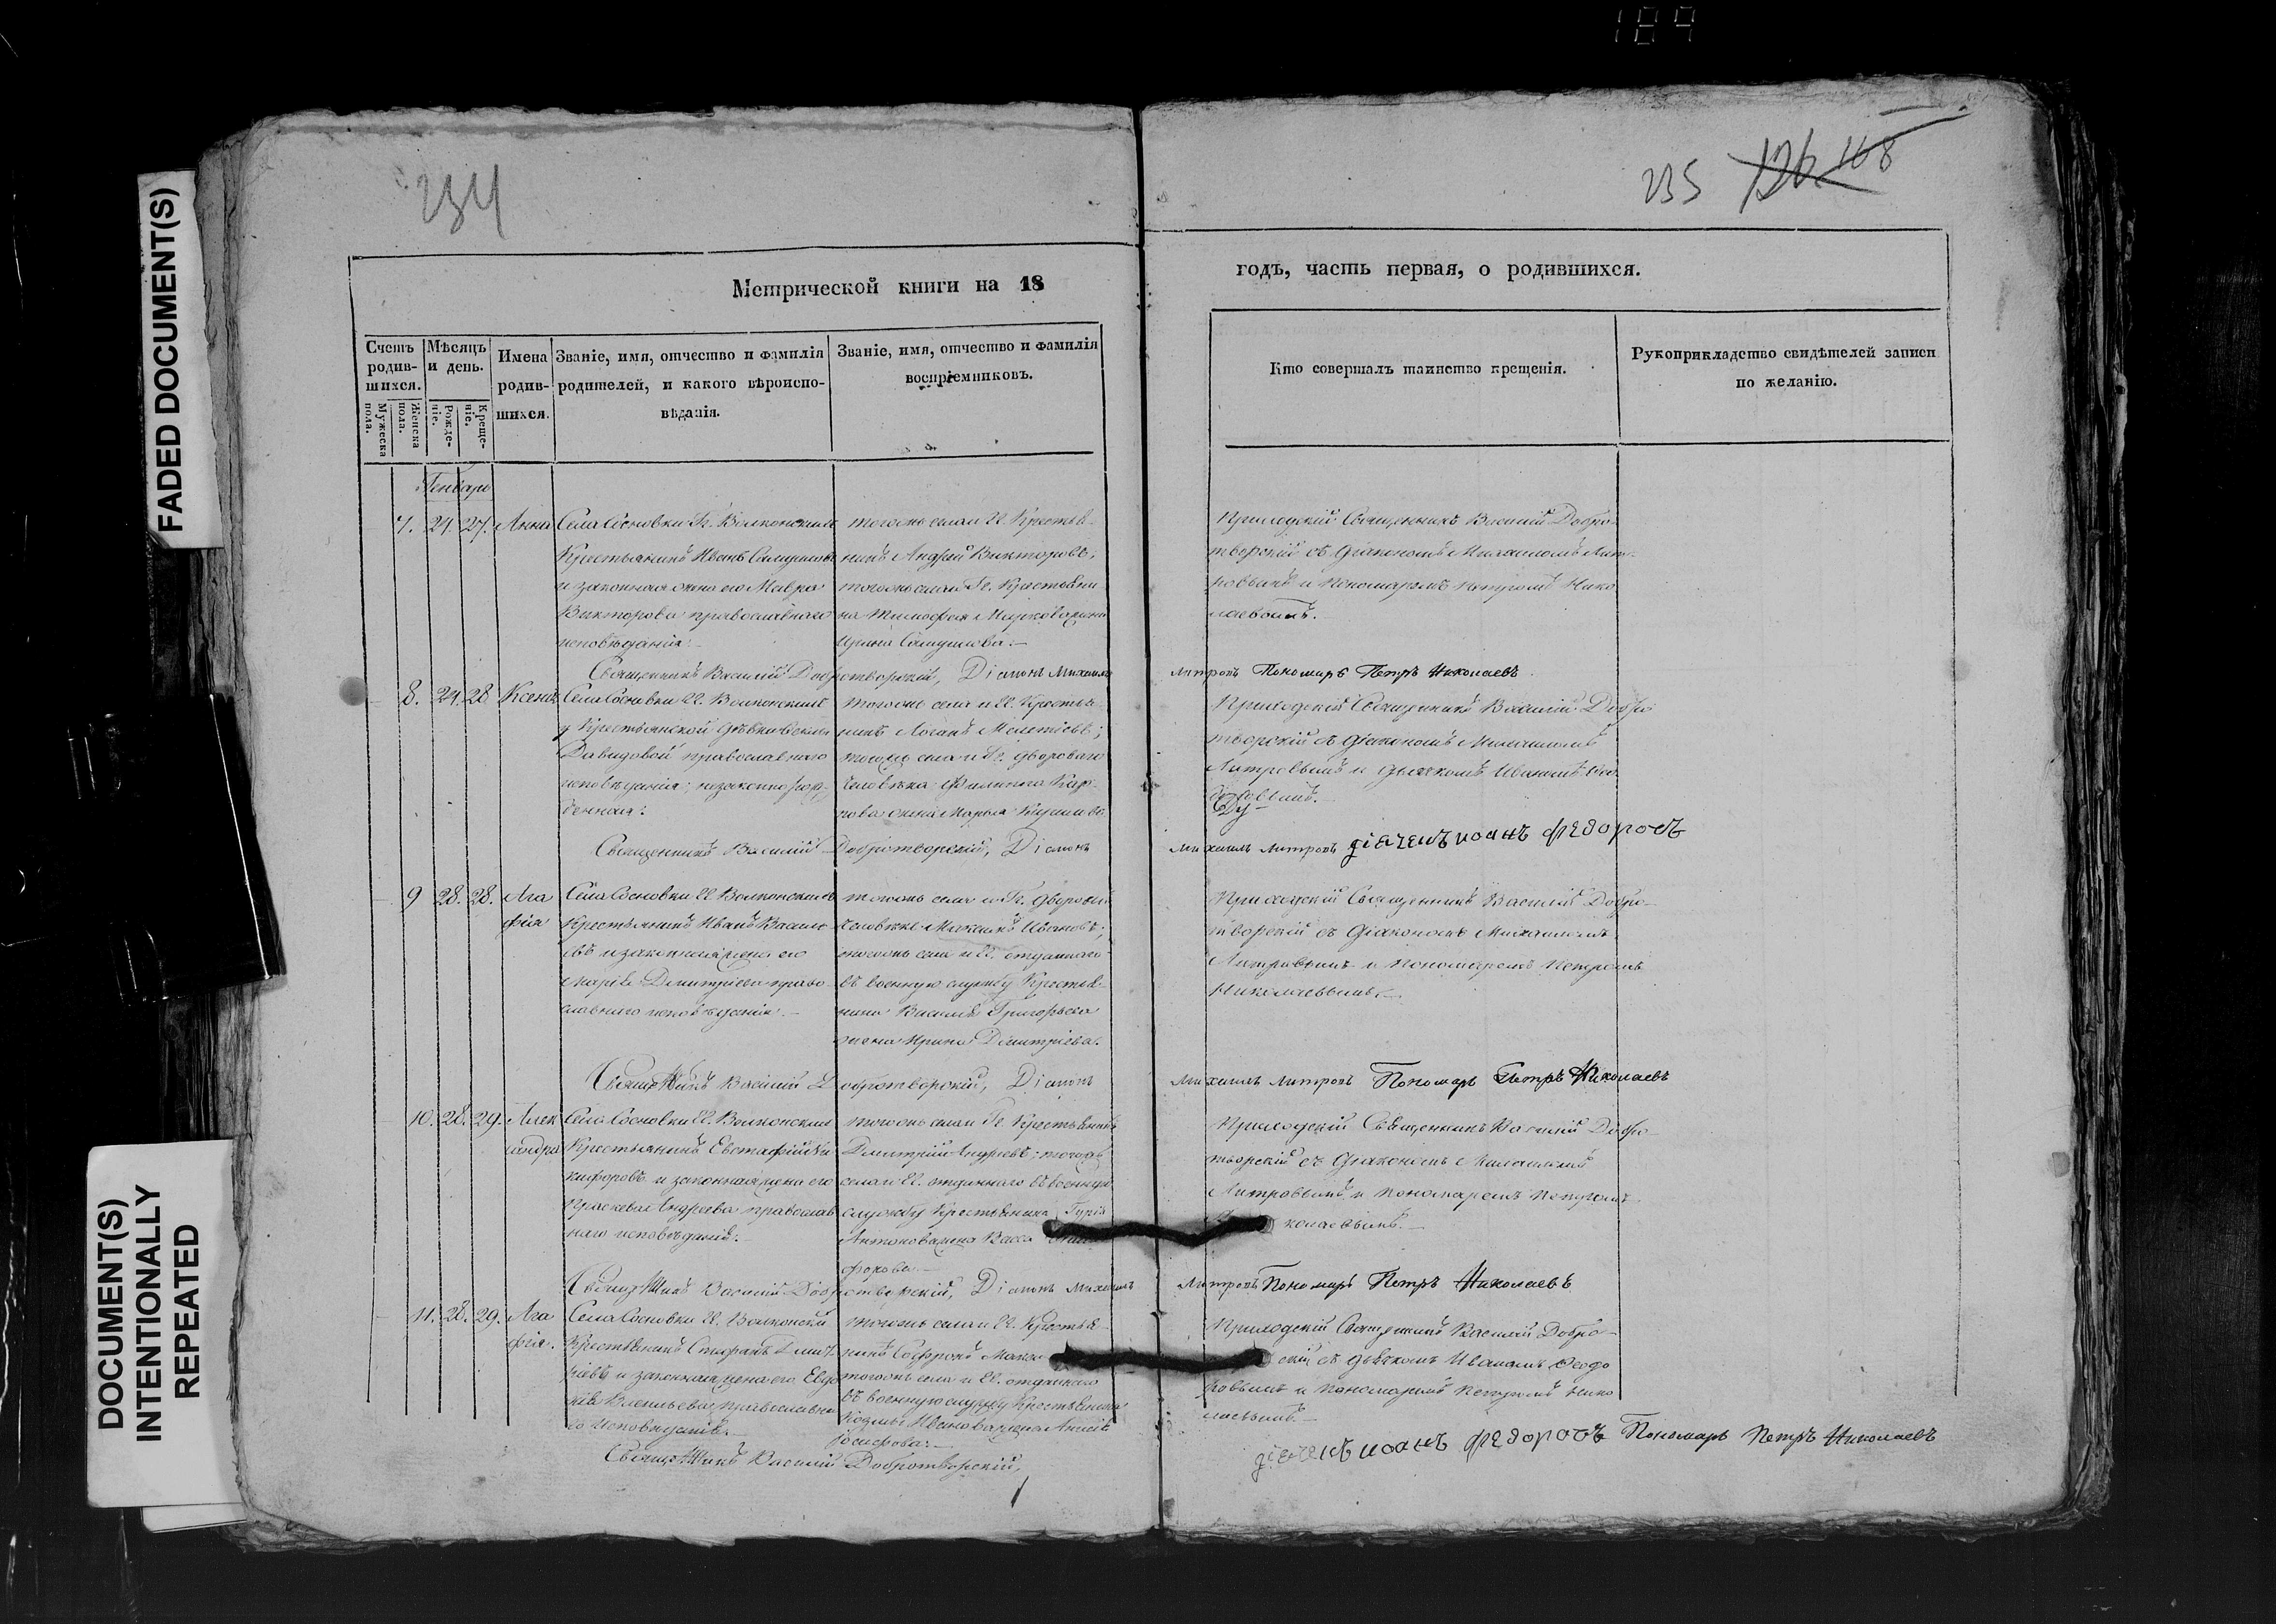 189
FADED DOCUMENT(S)
DOCUMENT(S)
INTENTIONALLY
REPEATED
234
235 126 168
Метрической книги на 18
годъ, часть первая, о родившихся.
Счетъ родив-шихся.
Мужеска пола.
Женска пола.
Мѣсяцъ и день.
Рожде-ніе.
Креще-ніе.
Имена родив-шихся.
Званіе, имя, отчество и фамилія
родителей, и какого вѣроиспо-
вѣданія.
Званіе, имя, отчество и фамилія
воспріемниковъ.
Кто совершалъ таинство крещенія.
Рукоприкладство свидѣтелей записи
по желанію.
Генваря
7. 24. 27. Анна
Села Сосновки Гг. Волконскихъ
Крестьянинъ Иванъ
и законная жена его Мавра
Викторова православнаго
исповѣданія.
тогожъ села и Гг. Крестья-
нинъ Андрей Викторовъ;
тогожъ села и Гг. Крестьяни-
на Тимофея Маркова жена
Ирина
Приходскій Священникъ Василій Добро-
творскій съ Діакономъ Михаиломъ Лит-
ровымъ и Пономаремъ Петромъ Нико-
лаевымъ.
Священникъ Василій Добротворскій, Діаконъ Михаилъ Литровъ Пономарь Петръ Николаевъ
8. 24. 28 Ксенія
Села Сосновки Гг. Волконскихъ
у Крестьянской дѣвки
Давидовой православнаго
исповѣданія; незаконнорож-
денная:
тогожъ села и Гг. Крестья-
нинъ Мелетіевъ;
тогожъ села и Гг. двороваго
человѣка Филиппа Кар-
пова жена Марья
Приходскій Священникъ Василій Добро-
творскій съ Діакономъ Михаиломъ
Литровымъ и дьячкомъ Иваномъ Ѳео-
доровымъ.
Священникъ Василій Добротворскій, Діаконъ Михаилъ Литровъ діячекъ иоанъ федоровъ
9 28. 28. Ага
фія
Села Сосновки Гг. Волконскихъ
Крестьянинъ Иванъ Василь-
евъ и законная жена его
Марія Димитріева право-
славнаго исповѣданія.
тогожъ села и Гг. дворовый
человѣкъ Максимъ Ивановъ;
тогожъ села и Гг. отданнаго
въ военную службу Крестья-
нина Василія Григорьева
жена Ирина Димитріева.
Приходскій Священникъ Василій Добро-
творскій съ Діакономъ Михаиломъ
Литровымъ и Пономаремъ Петромъ
Николаевымъ.
Священникъ Василій Добротворскій, Діаконъ Михаилъ Литровъ Пономарь Петръ Николаевъ
10. 28. 29. Алек
сандра
Села Сосновки Гг. Волконскихъ
Крестьянинъ Евстафій Ни-
кифоровъ и законная жена его
Праскева Андреева православ-
наго исповѣданія.
тогожъ села и Гг. Крестьянинъ
Димитрій Андреевъ; тогожъ
села и Гг. отданнаго въ военную
службу Крестьянина Гурія
Антонова жена Васса
форова.
Приходскій Священникъ Василій Добро-
творскій съ Діакономъ Михаиломъ
Литровымъ и Пономаремъ Петромъ
колаевымъ.
Священникъ Василій Добротворскій, Діаконъ Михаилъ Литровъ Пономарь Петръ Николаевъ
11. 28. 29. Ага
фія.
Села Сосновки Гг. Волконскихъ
Крестьянинъ Стефанъ Димит-
ріевъ и законная жена его Евдо-
кія православна-
го исповѣданія.
тогожъ села и Гг. Крестья-
нинъ Софронъ
тогожъ села и Гг. отданнаго
въ военную службу Крестьянина
Козмы Иванова жена
Іосифова.
Приходскій Священникъ Василій Добро-
скій съ дьячкомъ Иваномъ Ѳеодо-
ровымъ и Пономаремъ Петромъ Нико-
лаевымъ.
Священникъ Василій Добротворскій, діячекъ иоанъ федоровъ Пономарь Петръ Николаевъ